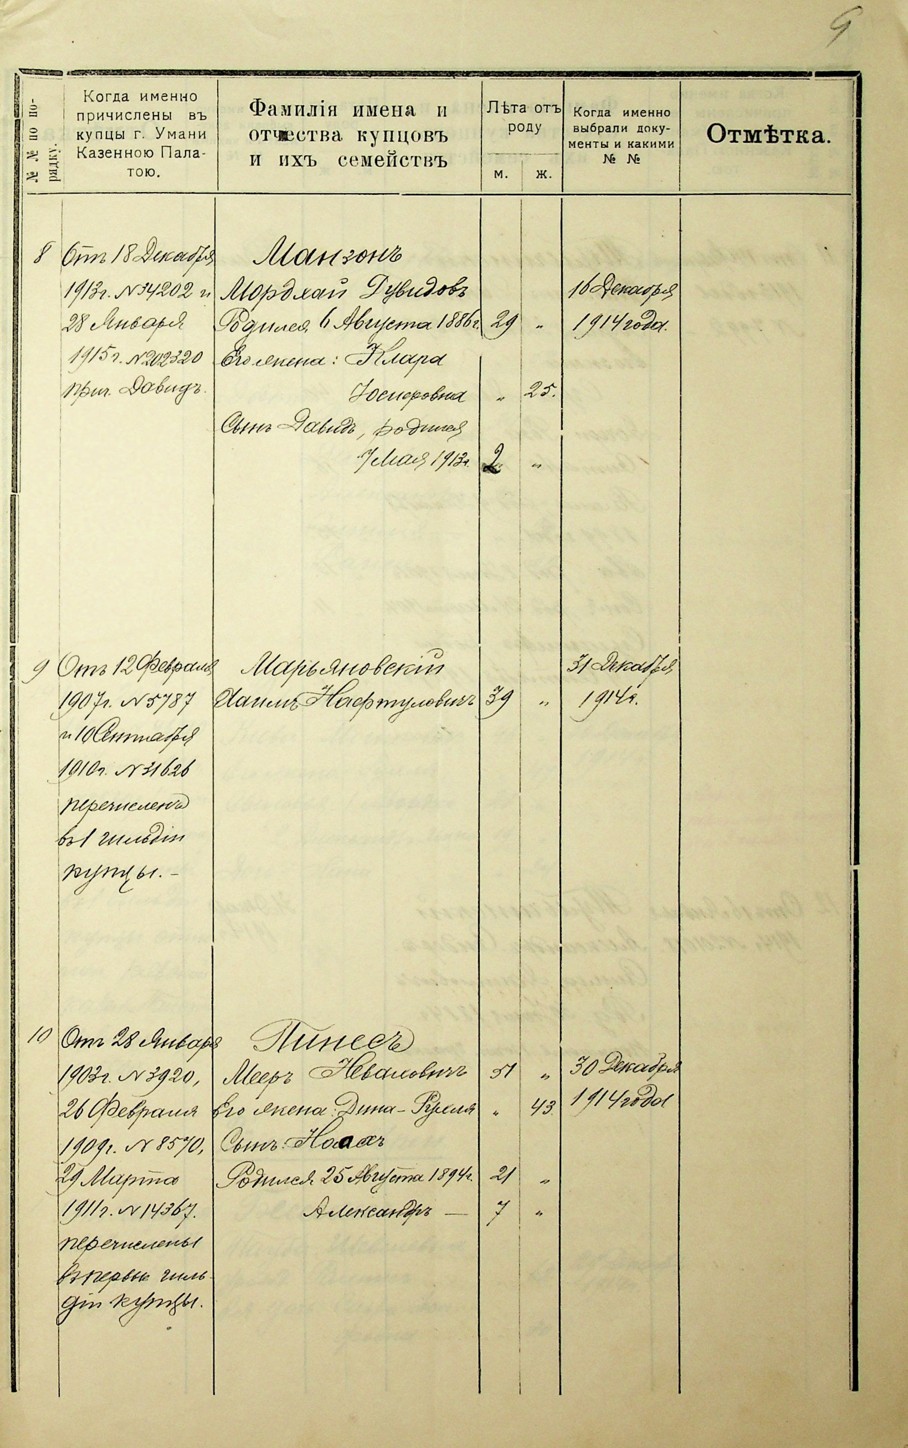 № № по порядку.
Когда именно
причислены въ
купцы г. Умани
Казенною Пала-
тою.
Фамилія имена и
отчества купцовъ
и ихъ семействъ
Лѣта отъ
роду
м.
ж.
Когда именно
выбрали доку-
менты и какими
№ №
Отмѣтка.
8
Отъ 18 Декабря
1913г. №34202 и
28 Января
1915г. №202320
прич. Давидъ.
Манзонъ
Мордхай Дувидовъ
Родился 6 Августа 1886г.
29 „
Его жена: Клара
Іосифовна
„ 25.
Сынъ Давидъ, родился
7 Мая 1913г.
2 „
16 Декабря
1914 года.
9
Отъ 12 Февраля
1907г. №5787
и 10 Сентября
1910г. №31626
перечисленъ
въ 1 гильдіи
купцы.–
Марьяновскій
Хаимъ Нафтуловичъ
39 „
31 Декабря
1914г.
10
Отъ 28 Января
1903г. №3920,
26 Февраля
1909г. №8570,
29 Марта
1911г. №14367.
перечислены
въ первыи гиль-
діи купцы.
Пинесъ
Мееръ
51 „
Его жена: Дина-Рухля
„ 43
Сынъ: Ноахъ
Родился 25 Августа 1894г.
21 „
Александръ —
7 „
30 Декабря
1914 года